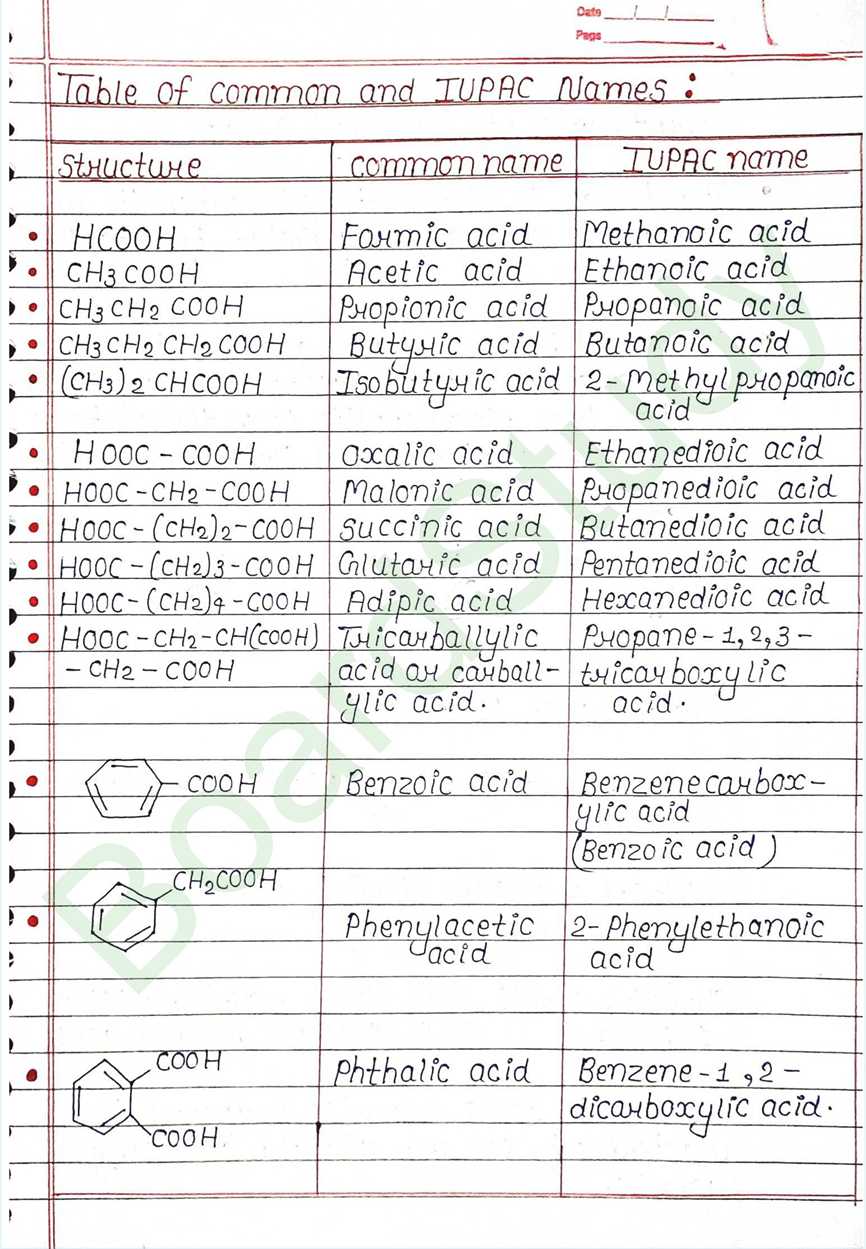 Date / /
Page
Table of common and IUPAC Names :
Structure common name IUPAC name
HCOOH Formic acid Methanoic acid
CH3COOH Acetic acid Ethanoic acid
CH3CH2COOH Propionic acid Propanoic acid
CH3CH2CH2COOH Butyric acid Butanoic acid
(CH3)2CHCOOH Isobutyric acid 2-Methylpropanoic
acid
HOOC-COOH oxalic acid Ethanedioic acid
HOOC-CH2-COOH Malonic acid Propanedioic acid
HOOC-(CH2)2-COOH succinic acid Butanedioic acid
HOOC-(CH2)3-COOH Glutaric acid Pentanedioic acid
HOOC-(CH2)4-COOH Adipic acid Hexanedioic acid
HOOC-CH2-CH(COOH) Tricarballylic Propane-1,2,3-
-CH2-COOH acid or carball- tricarboxylic
ylic acid. acid.
COOH Benzoic acid Benzenecarbox-
ylic acid
(Benzoic acid)
CH2COOH
Phenylacetic 2-Phenylethanoic
acid acid
COOH Phthalic acid Benzene-1,2-
dicarboxylic acid.
COOH
Boardstudy